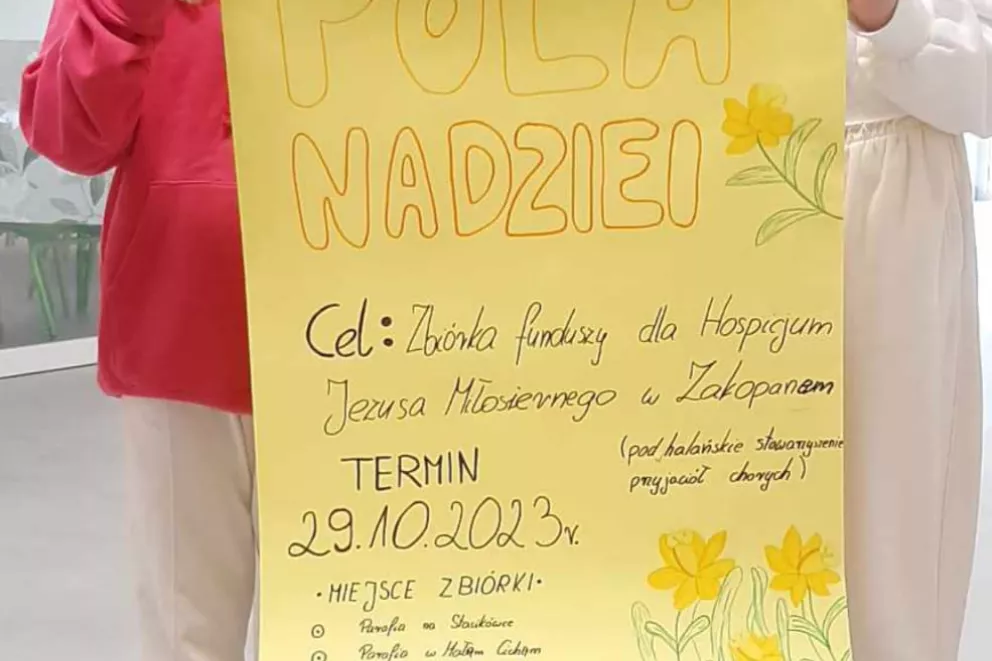 POLA
NADZIEI
Cel: Zbiórka funduszy dla Hospicjum
Jezusa Miłosiernego w Zakopanem
(podhalańskie stowarzyszenie
przyjaciół chorych)
TERMIN
29.10.2023r.
• MIEJSCE ZBIÓRKI •
Parafia na Stasikówce
Parafia w Małym Cichym